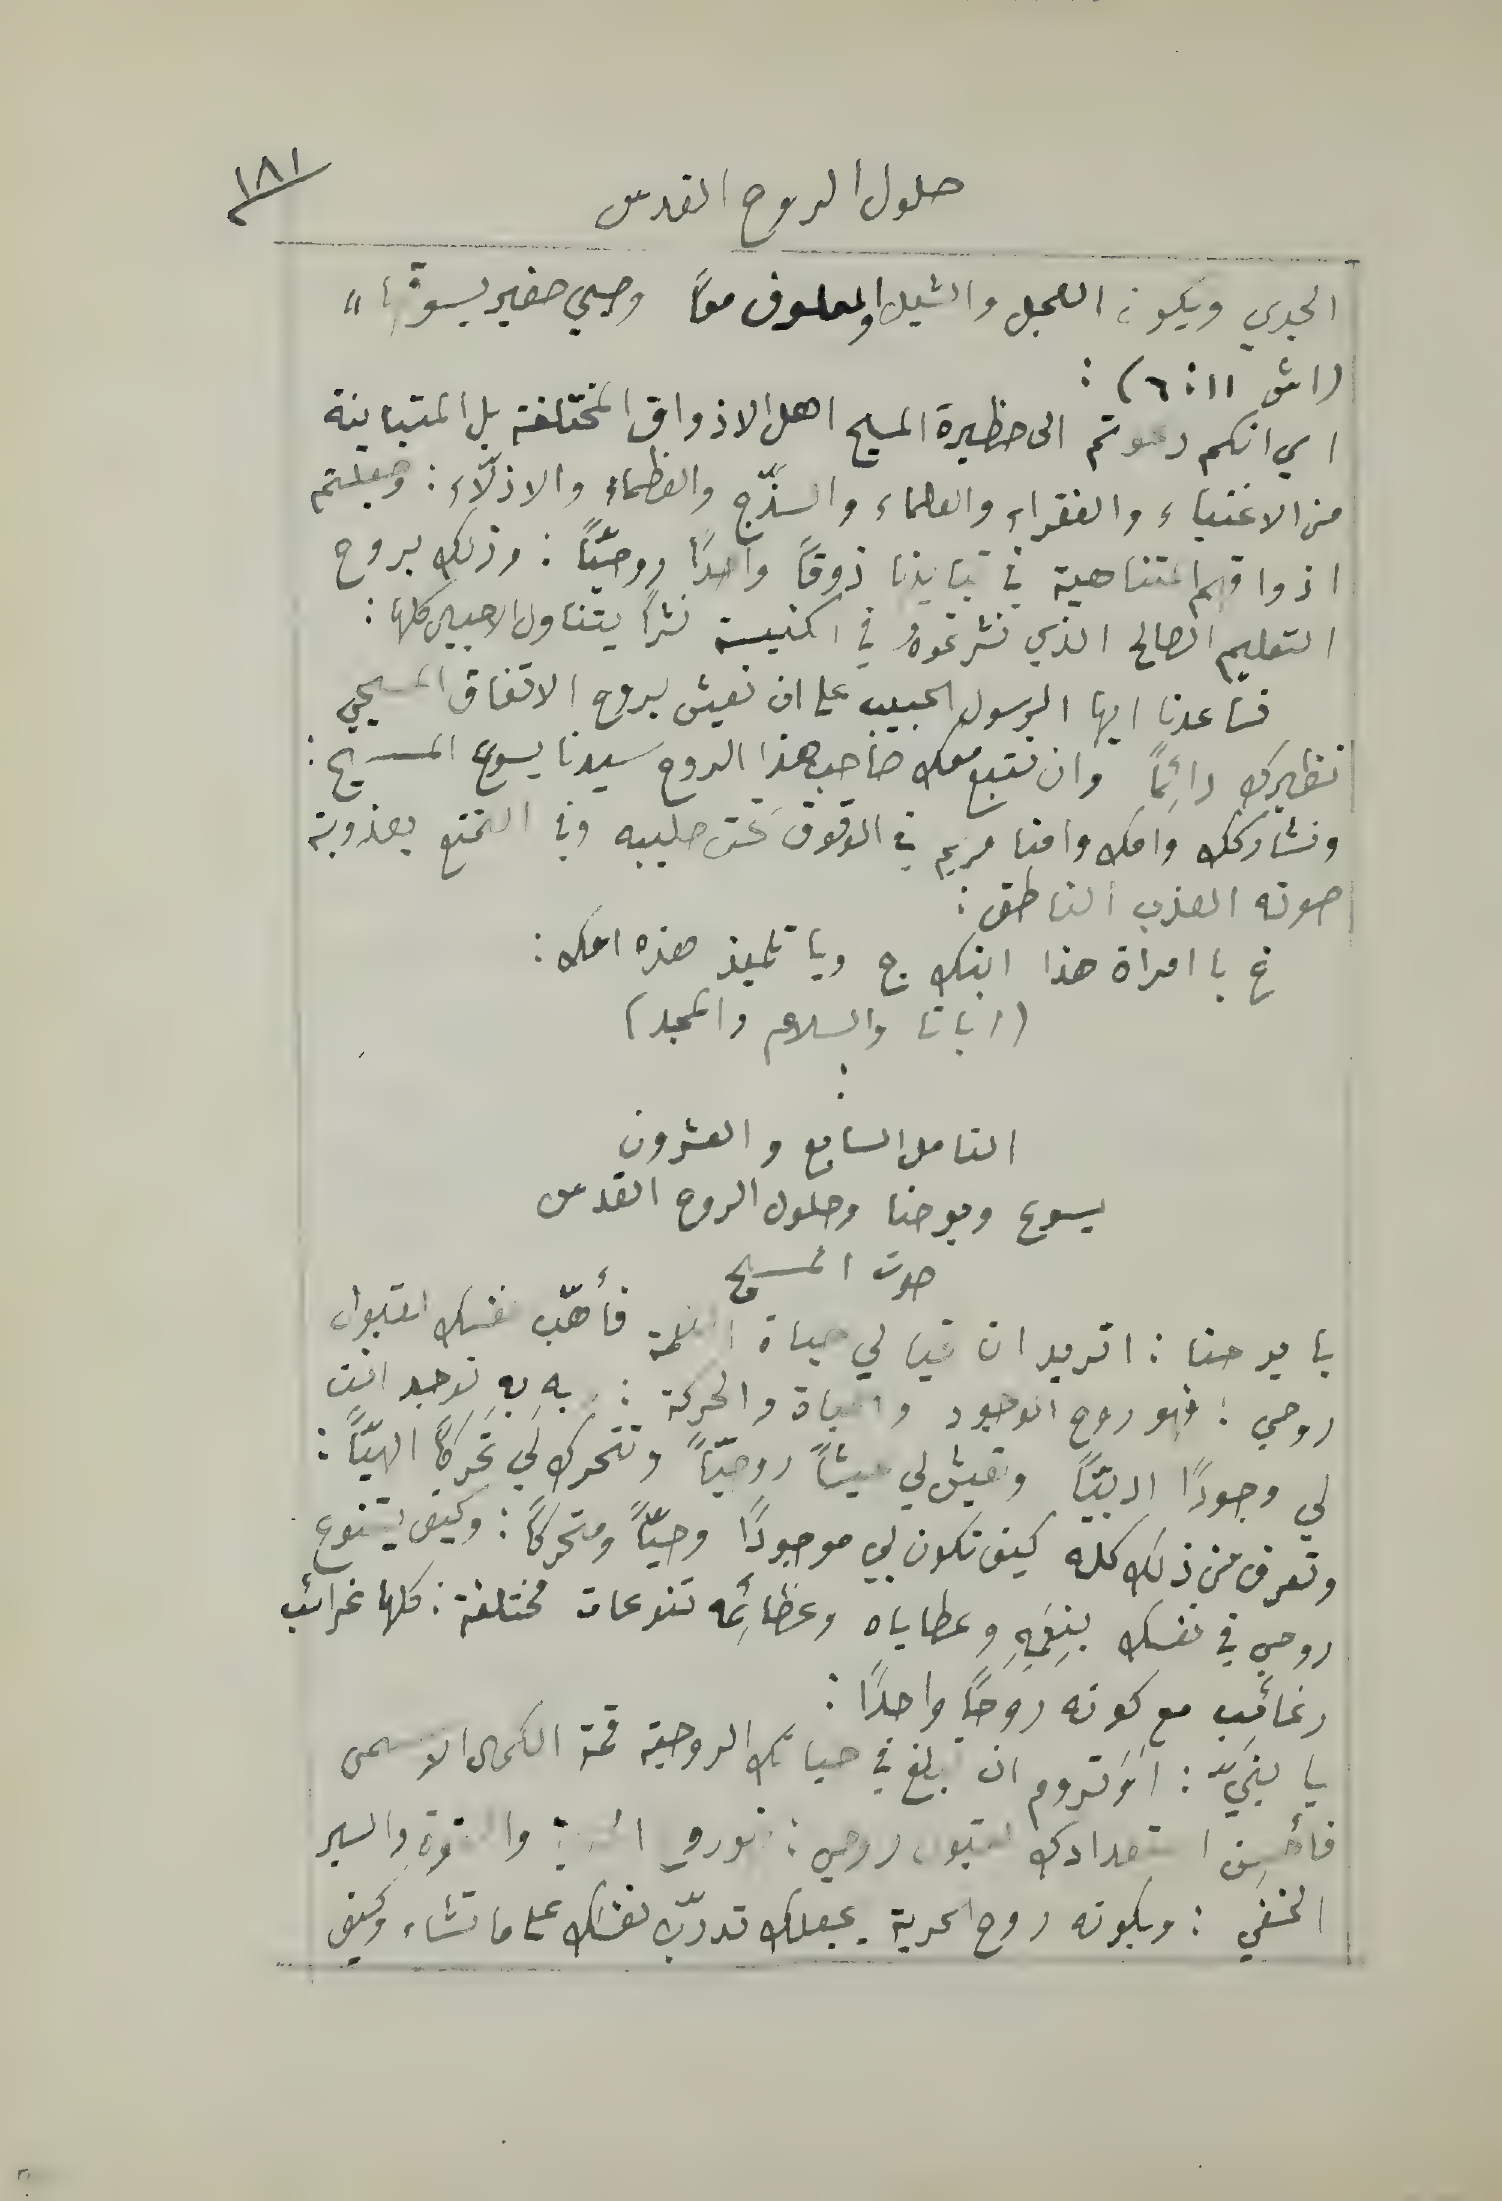 ١٨١
حلول الروح القدس
الجدي ويكون العجل والشبل والمعلوف معًا وصبي صغير يسوقها "
(اش ١١ : ٦) :
اي انكم دعوتم الى حظيرة المسيح اهل الاذواق المختلفة بل المتباينة
من الاغنياء والفقراء والعلماء والسذّج والعظماء والاذلّاء : وجعلتم
اذواقهم المتناهية في تباينها ذوقًا واحدًا روحيًّا : وذلك بروح
التعليم الصالح الذي نشرتموهُ في الكنيسة نشرًا يتناول الاجيال كلها :
فساعدنا ايها الرسول الحبيب على ان نعيش بروح الاتفاق المسيحي
نظيرك دائمًا وان نتبع معك صاحب هذا الروح سيدنا يسوع المسيح :
ونشاركك وامك وامنا مريم في الوقوف تحت صليبه وفي التمتع بعذوبة
صوته العذب الناطق :
يا امراة هذا ابنك ج ويا تلميذ هذه امك :
(ابانا والسلام والمجد)
التامل السابع والعشرون
يسوع ويوحنا وحلول الروح القدس
صوت المسيح
يا يوحنا : اتريد ان تحيا لي حياة النعمة فأهّب نفسك لقبول
روحي : فهو روح الوجود والحياة والحركة : بهِ بهِ توجد انت
لي وجودًا ادبيًّا وتعيش لي عيشًا روحيًّا وتتحرك لي تحركًا الهيًّا :
وتعرف من ذلك كله كيف تكون لي موجودًا وحيًّا ومتحركًا : وكيف يتنوع
روحي في نفسك بنِعَمِهِ وعطاياه وعظائمه تنوعات مختلفة : كلها غرائب
رغائب مع كونه روحًا واحدًا :
يا بنيّ : أوَتروم ان تبلغ في حياتك الروحية قمة الكمال الاسمى
فأحسِن استعدادك لقبول روحي : والقوة والسير
الخفي : وبكونه روح الحرية يجعلك تدرّب نفسك على ما تشاء وكيف